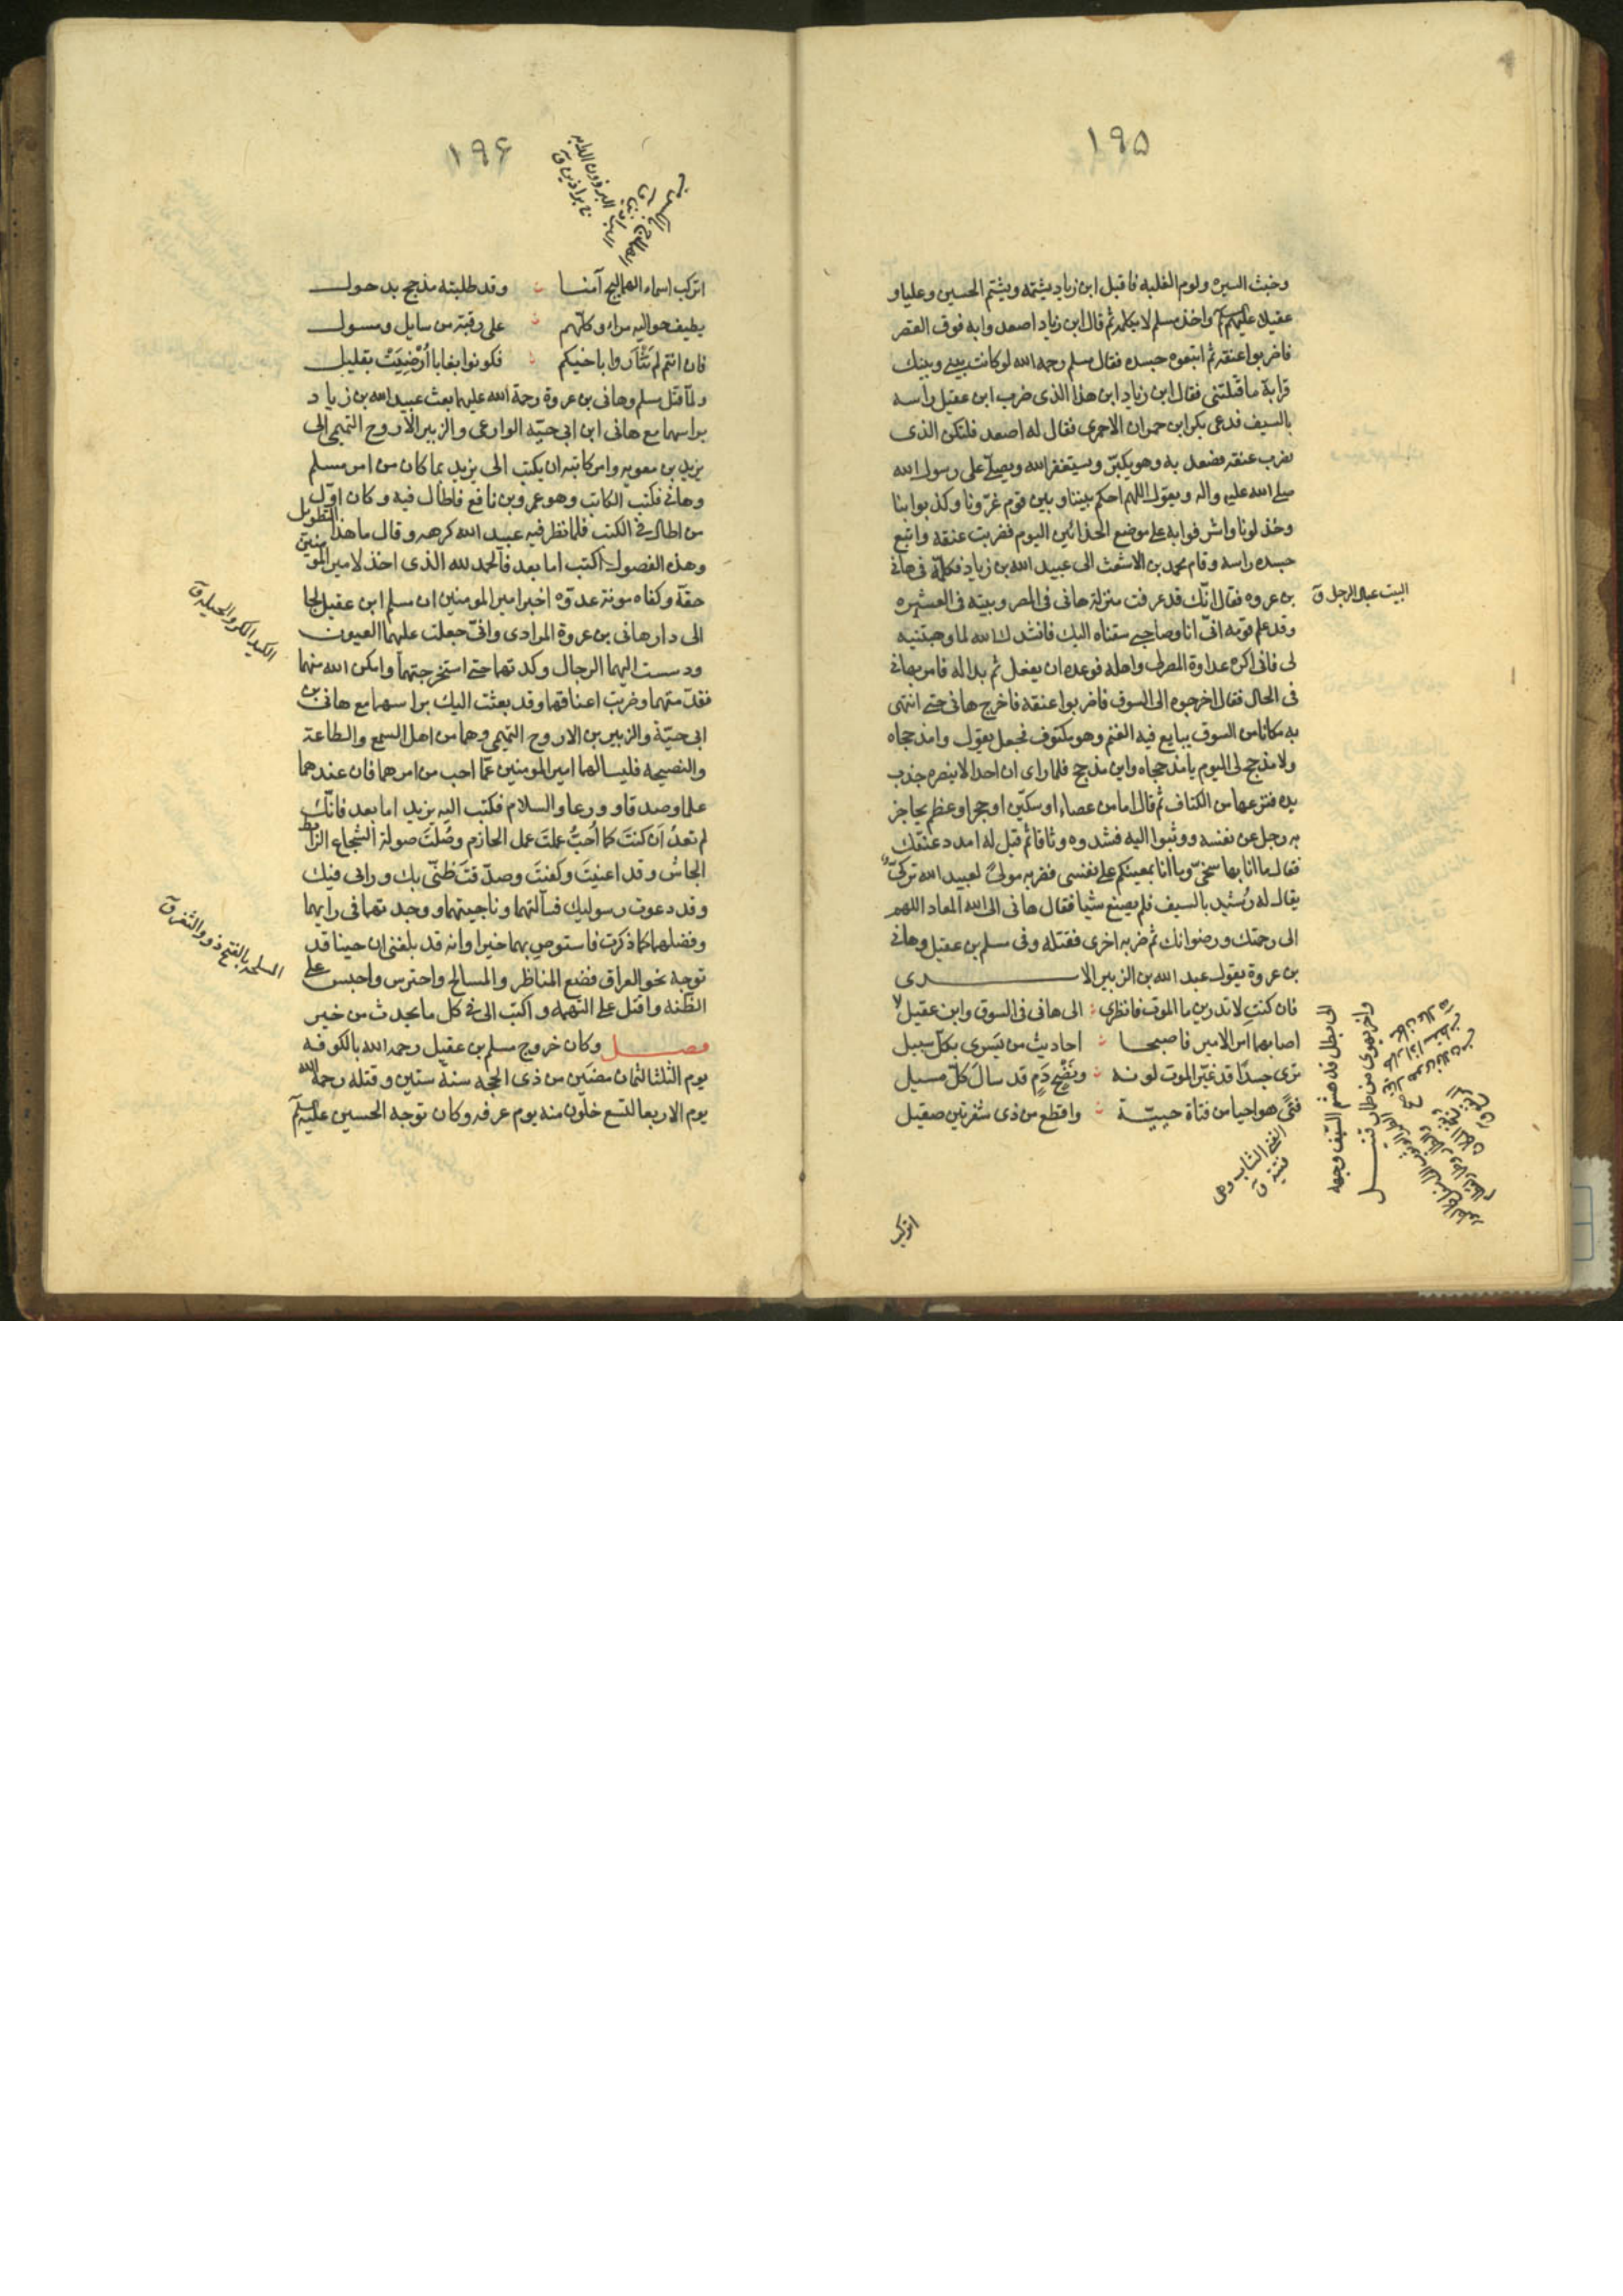 ١٩٥
وخبث السيره ولوم الغلبه فاقبل ابن زياد يشتمه ويشتم الحسين وعليا و
عقيلا عليهم السلم واخذ مسلم لا يكلمه ثم قال ابن زياد اصعدوا به فوق القصر
فاضربوا عنقه ثم اتبعوه جسده فقال مسلم رحمه الله لو كانت بيني وبينك
قرابة ما قتلتني فقال ابن زياد اين هذا الذى ضرب ابن عقيل راسه
بالسيف فدعى بكر ابن حمران الاحمرى فقال له اصعد فلتكن الذى
تضرب عنقه فصعد به وهو يكبّر ويستغفر الله ويصلّى على رسول الله
صلى الله عليه واله ويقول اللهم احكم بيننا وبين قوم غرّونا وكذبوا بنا
وخذلونا واشرفوا به على موضع الحذائين اليوم فضربت عنقه واتبع
جسده راسه وقام محمد بن الاشعث الى عبيد الله بن زياد فكلمّه فى هانى
بن عروه فقال انّك قد عرفت منزلة هانى فى المصر وبيته فى العشيره
وقد علم قومه انّى انا وصاحبى سقناه اليك فانشدك الله لما وهبتنيه
لى فانى اكره عداوة المصر لى واهله فوعده ان يفعل ثم بدا له فامر بهانى
فى الحال فقال اخرجوه الى السوق فاضربوا عنقه فاخرج هانى حتى انتهى
به مكانا من السوق يبايع فيه الغنم وهو مكتوف فجعل يقول وامذحجاه
ولا مذحج لى اليوم يا مذحجاه واين مذحج فلما راى ان احدا لا ينصره جذب
يده فنزعها من الكتاف ثم قال اما من عصاء او سكّين او حجر او عظم يحاجز
به رجل عن نفسه ووثبوا اليه فشدوه وثاقا ثم قيل له امدد عنقك
فقال ما انا بها سخىّ وما انا بمعينكم على نفسى فضربه مولىً لعبيد الله تركىّ
يقال له رُشيد بالسيف فلم يصنع شيا فقال هانى الى الله المعاد اللهم
الى رحمتك ورضوانك ثم ضربه اخرى فقتله وفى مسلم بن عقيل وهانى
بن عروة يقول عبد الله بن الزبير الاسدى
فان كنتِ لا تدرين ما الموت فانظرى الى هانى فى السوق وابن عقيل
الى بطل قد هشم السّيف وجهه
واخر يهوى من طمار قتيل
اصابهما امر الامير فاصبحا احاديث من يَسرى بكل سبيل
ترى جسدًا قد غيّر الموت لونه ونَضْح دَمٍ قد سالَ كلّ مسيل
فتًى هو احيا من فتاة حييّة واقطع من ذى شفرتين صقيل
البيت عيال الرجل ق
الفتى الشاب وهى
فتية ق
اتركب
١٩٤
اتركب اسماء الهماليج آمنا وقد طلبته مذحج بدحول
يطيف حواليه مراد وكلّهم على رقبة من سايل ومسول
فان انتم لم تَثْأَروا باخيكم فكونوا بغايا أُرْضِيَتْ بقليل
ولمّا قتل مسلم وهانى بن عروة رحمة الله عليهما بعث عبيد الله بن زياد
براسهما مع هانى ابن ابى حيّه الوادعى والزبير الاروح التميمى الى
يزيد بن معويه وامر كاتبه ان يكتب الى يزيد بما كان من امر مسلم
وهانى فكتب الكاتب وهو عمرو بن نافع فاطال فيه وكان اوّل
من اطال فى الكتب فلما نظر فيه عبيد الله كرهه وقال ما هذا التطويل
وهذه الفصول اكتب اما بعد فالحمد لله الذى اخذ لامير المومنين
حقّه وكفاه مونة عدوّه اخبر امير المومنين ان مسلم ابن عقيل لجا
الى دار هانى بن عروة المرادى وانّى جعلت عليهما العيون
ودسست اليهما الرجال وكدتهما حتى استخرجتهما وامكن الله منهما
فقدّمتهما وضربت اعناقهما وقد بعثت اليك براسهما مع هانى بن
ابى حيّة والزبير بن الاروح التميمى وهما من اهل السمع والطاعة
والنصيحه فليسالهما امير المومنين عمّا احب من امرهما فان عندهما
علما وصدقا وورعا والسلام فكتب اليه يزيد اما بعد فانّك
لم تعدُ اَن كنتَ كما اُحبُّ عملتَ عمل الحازم وصُلتَ صولة الشجاع الرّابط
الجاش وقد اغنيتَ وكفيتَ وصدّقتَ ظنّى بك ورايى فيك
وقد دعوت رسوليك فسألتهما وناجيتهما ووجدتهما فى رايهما
وفضلهما كما ذكرت فاستوصِ بهما خيرا وانه قد بلغنى ان حسينا قد
توجه نحو العراق فضع المناظر والمسالح واحترس واحبس على
الظّنه واقتل على التهمه واكتب الى فى كل ما يحدث من خبر
فصل وكان خروج مسلم بن عقيل رحمه الله بالكوفه
يوم الثلثا لثمان مضَين من ذى الحجه سنة ستين وقتله رحمه الله
يوم الاربعا لتسع خلون منه يوم عرفه وكان توجه الحسين عليه السلم
الكيد المكر والحيله ق
المسلحه بالفتح ذوو الثغر ق